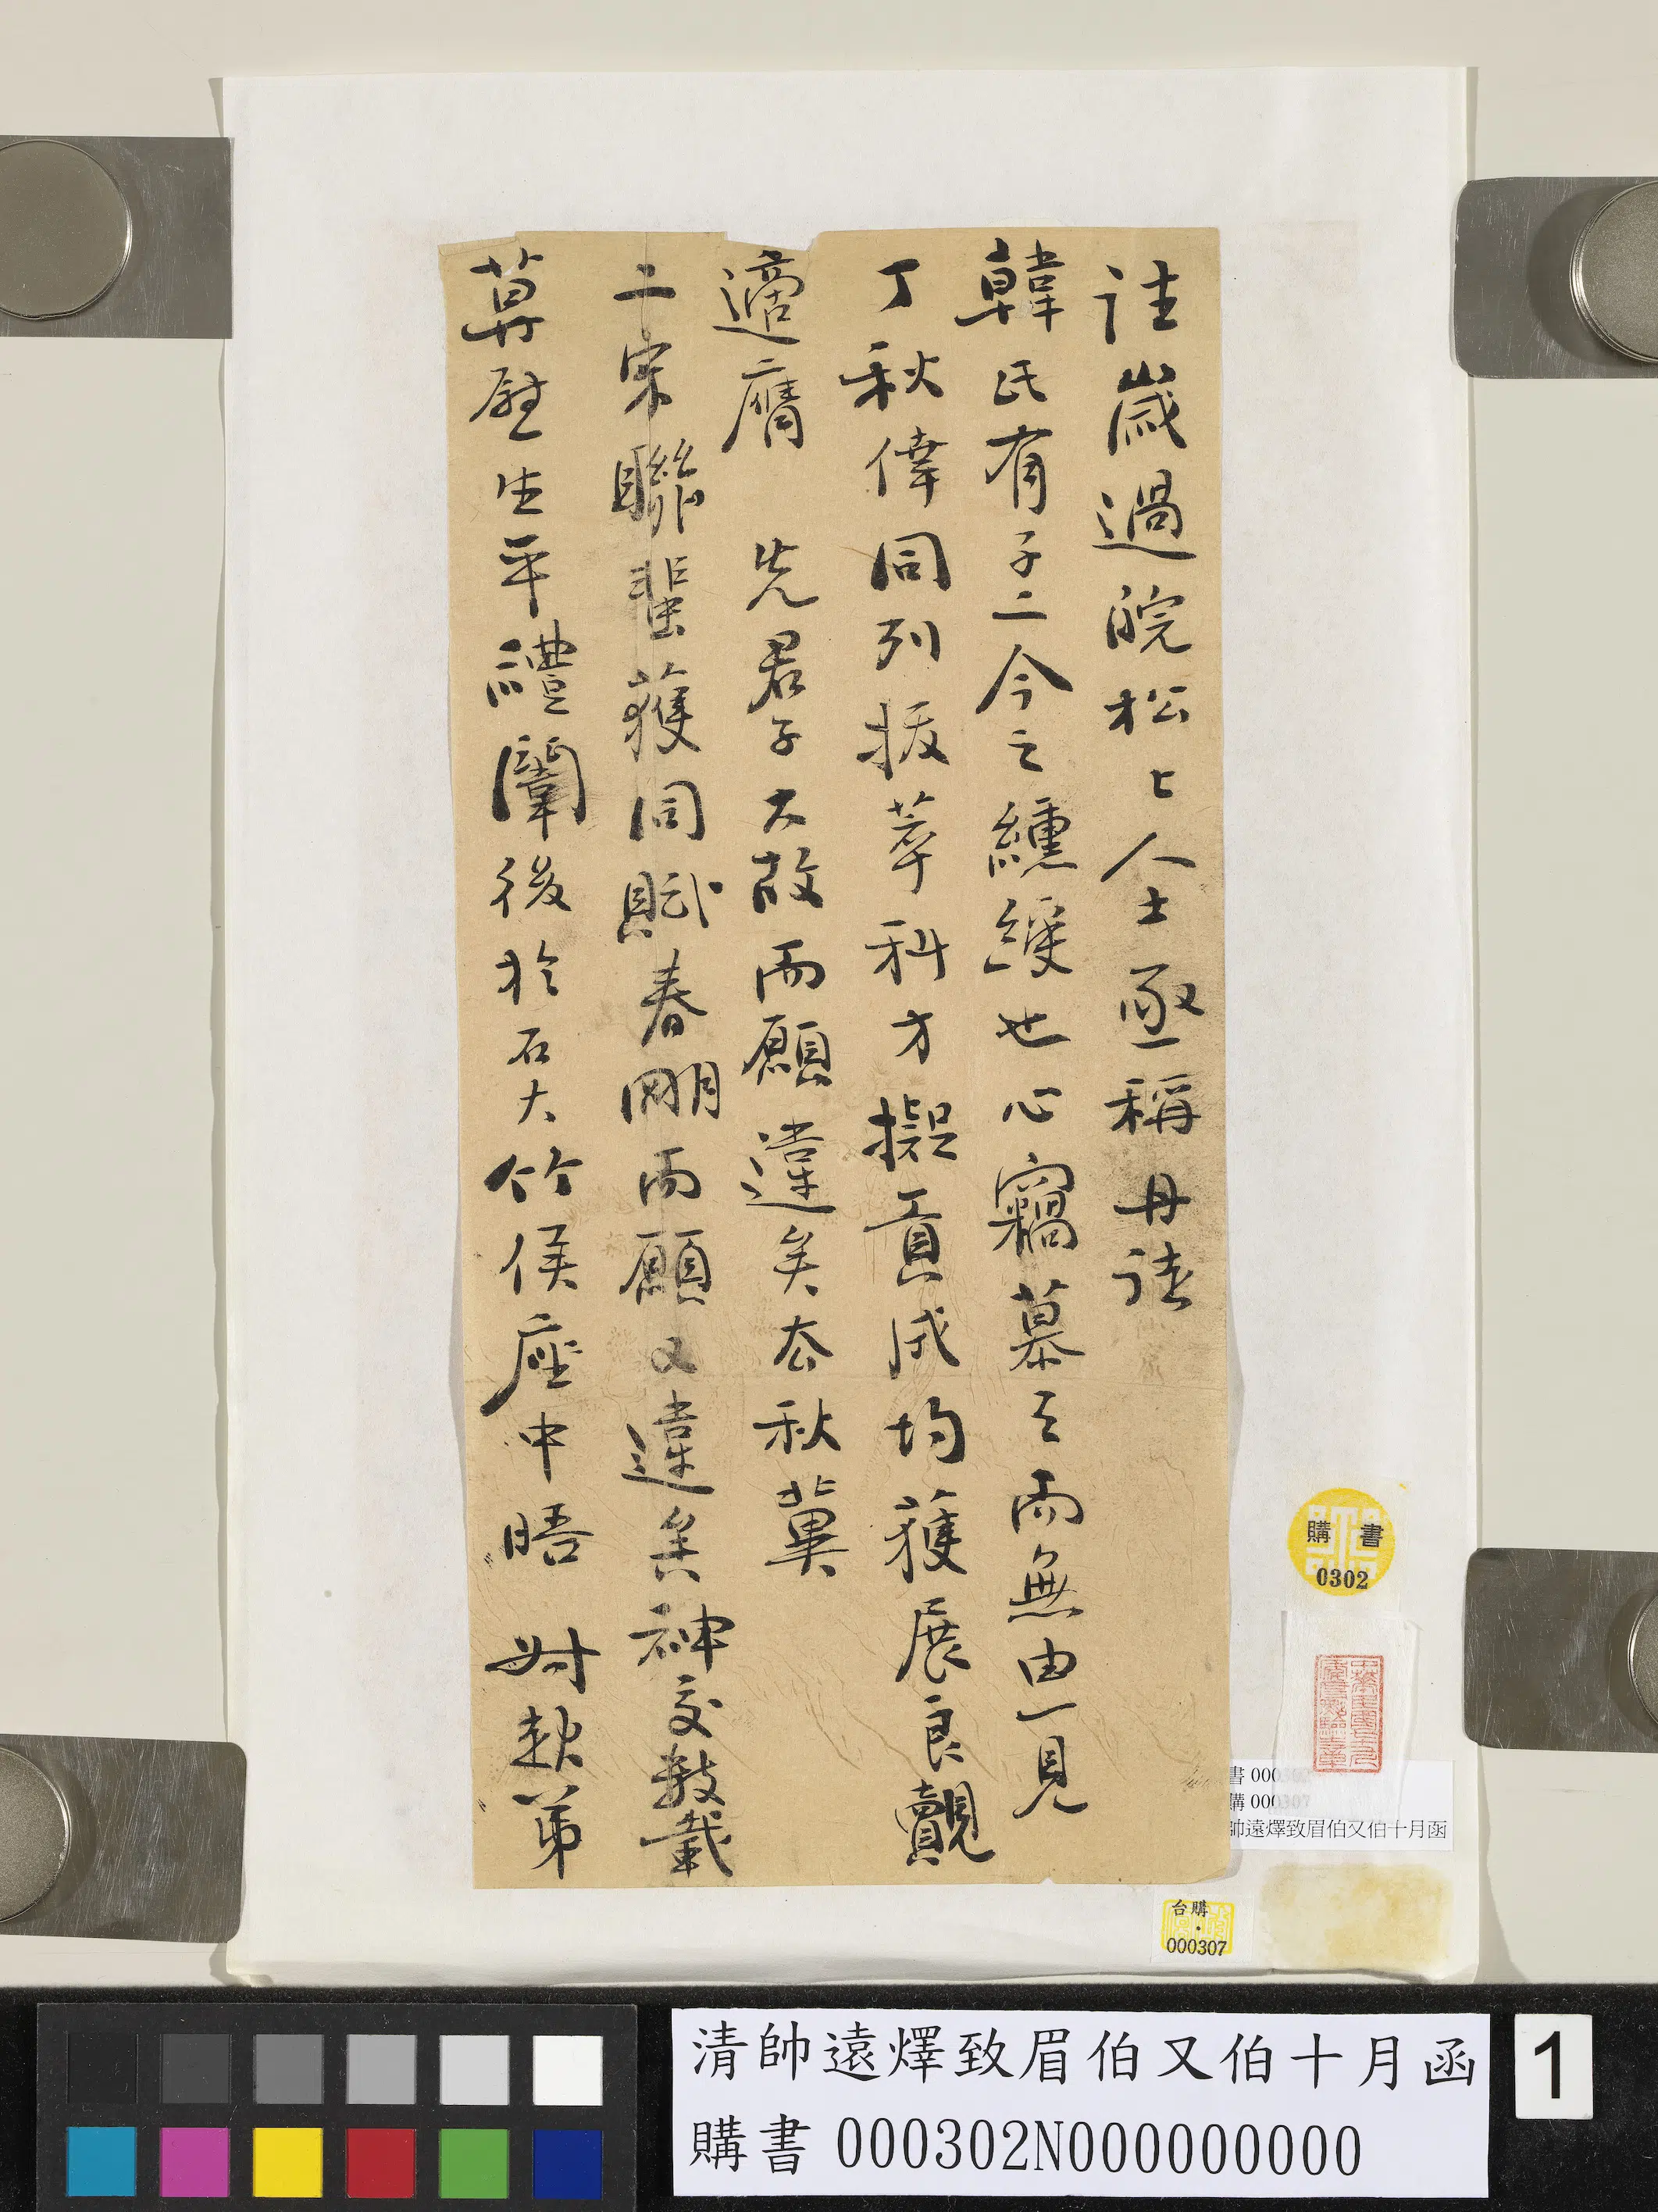 往歲過皖松上人士亟稱丹徒
韓氏有子二今之纁綬也心竊慕之而無由一見
丁秋倖同列拔萃科方擬貢成均獲展良覿
適膺 先君子大故而願違矣去秋冀
二宋聯蜚獲同賦春闈而願又違矣神交數載
莫慰生平禮闈後於石大竹侯座中晤 尌猌弟
購書
0302
書 000
購 000307
帥遠燡致眉伯又伯十月函
台購
000307
清帥遠燡致眉伯又伯十月函
購書 000302N000000000
1